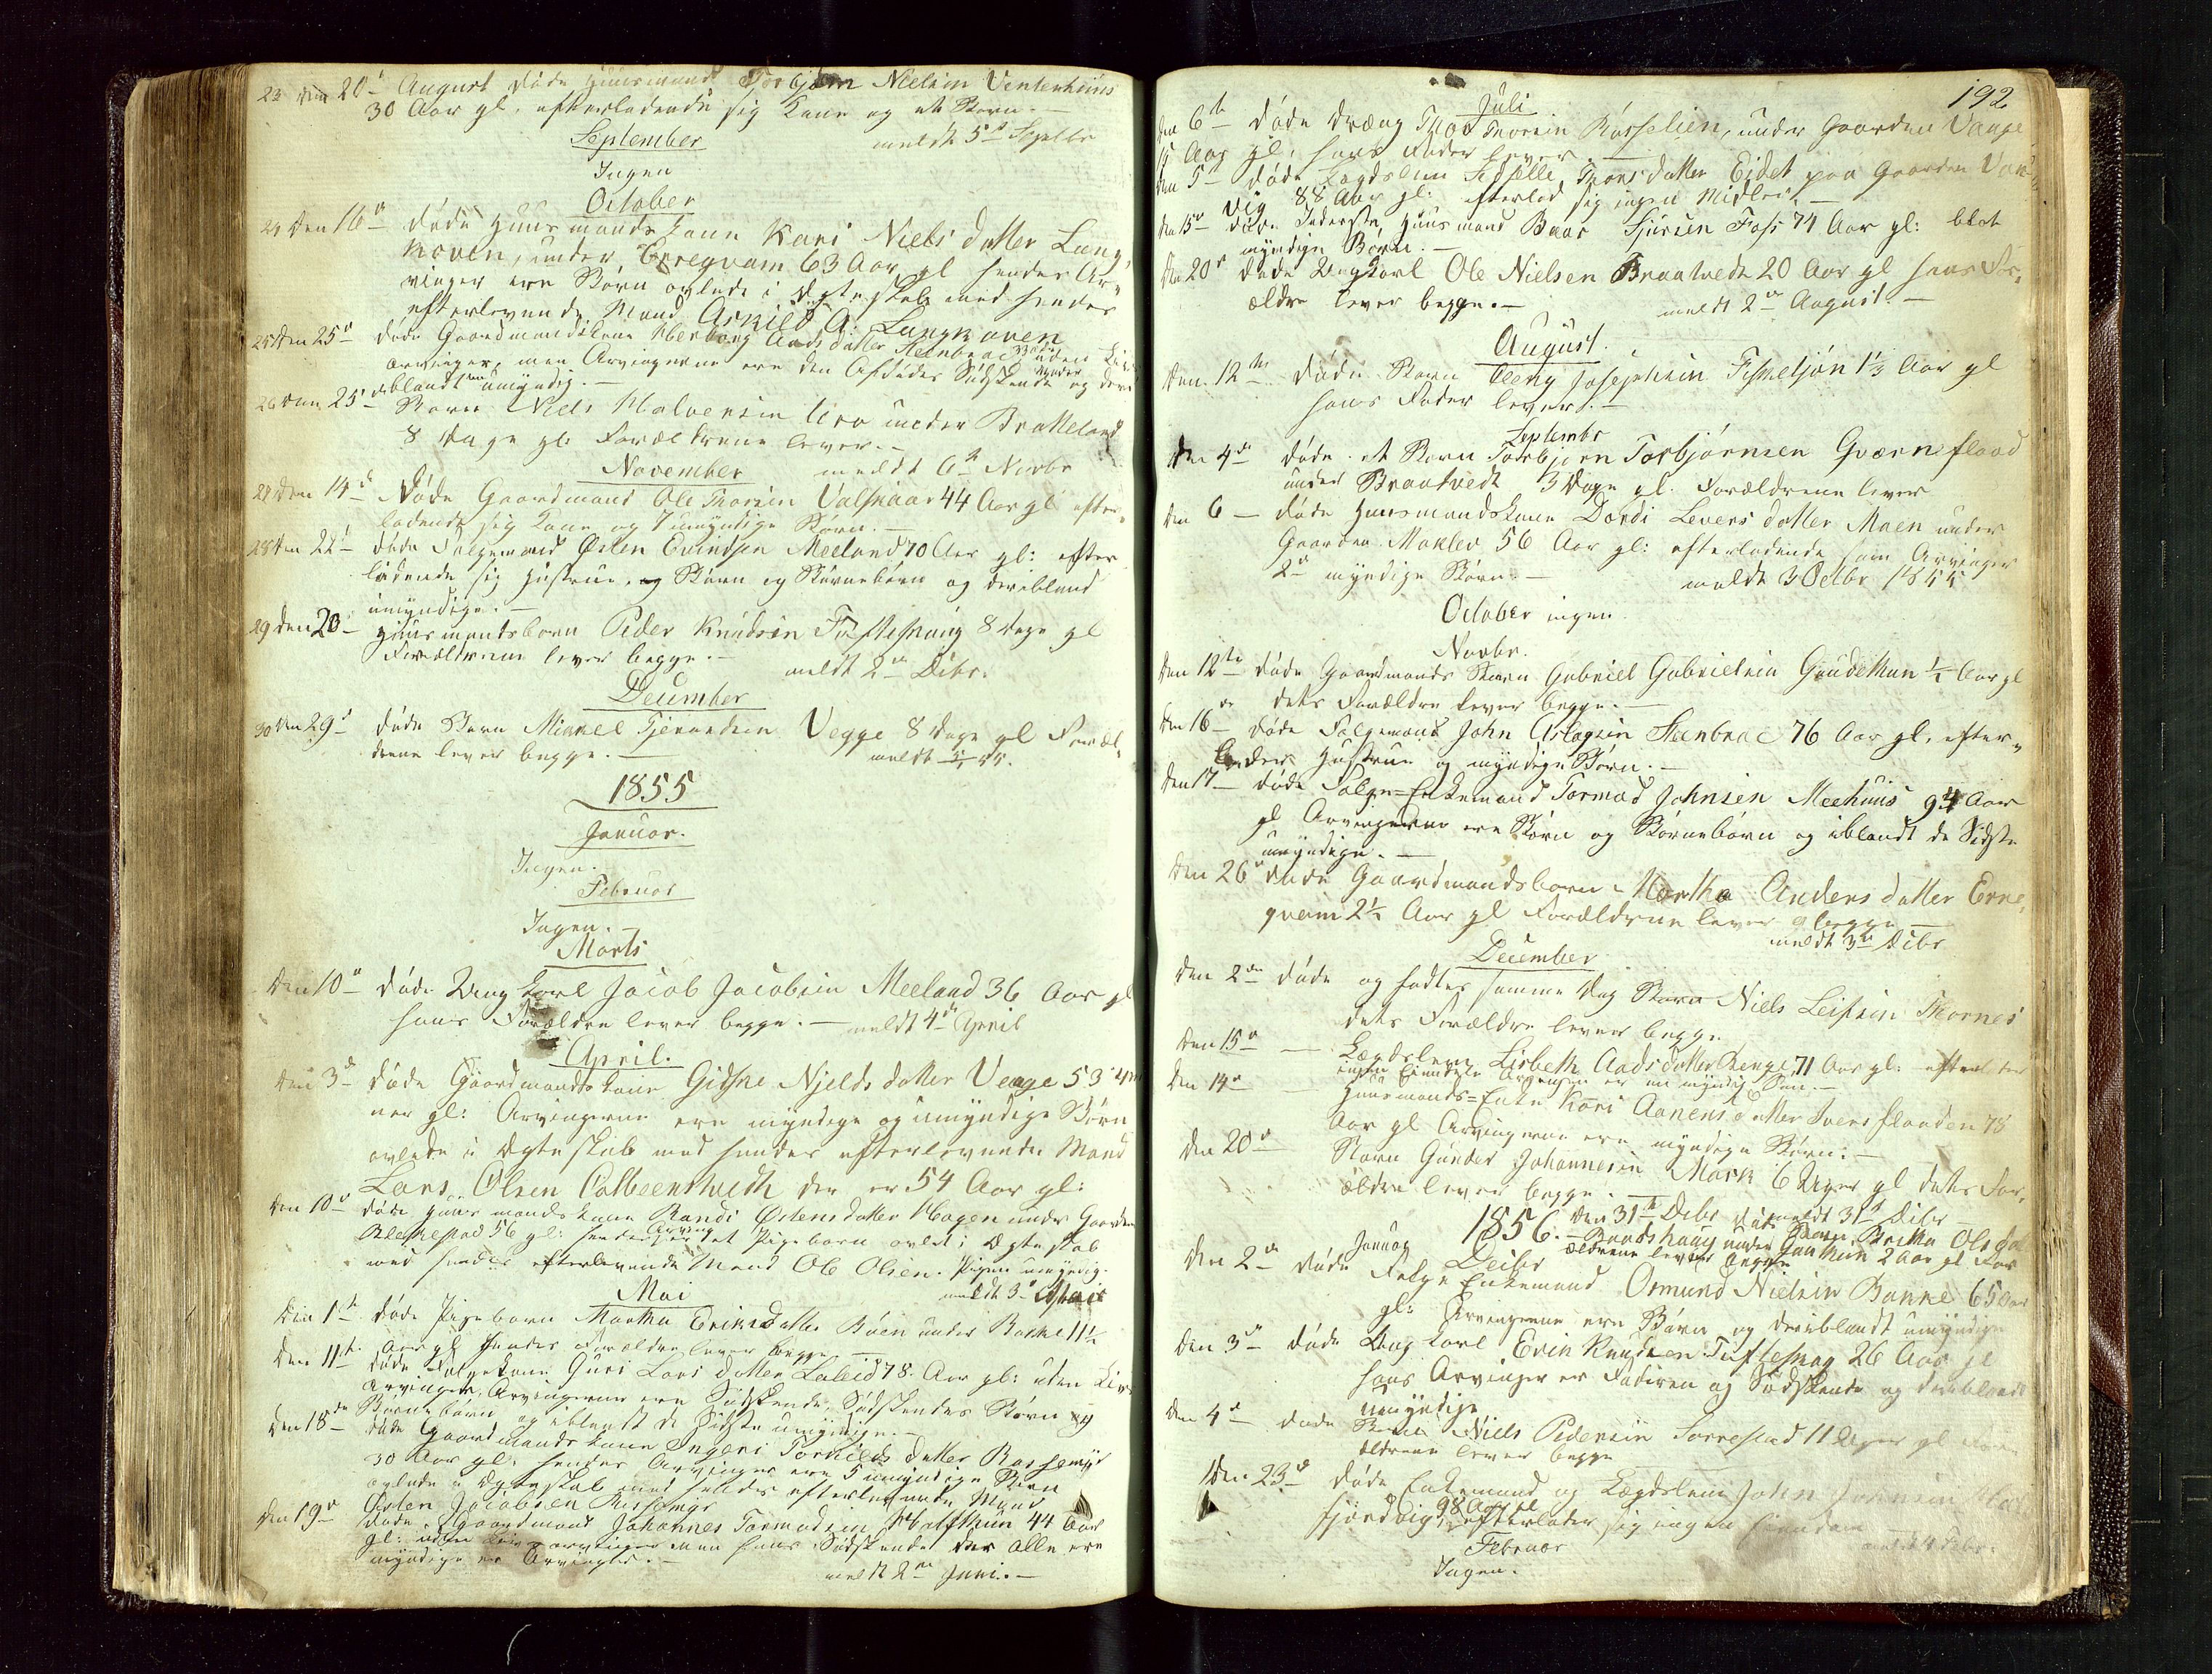 23 den 20 August døde Huusmand Torbjørn Nielsen Vintenhuus
30 Aar gl. efterladende sig Kone og et Barn.
September meldt 5 Septbr
Ingen
October
24 Den 16 døde Huusmands Kone Kari Niels datter Lang
hoven, under Erreqvam 63 Aar gl hendes Ar-
vinger ere Børn avlede i Ægteskab med hendes
efterlevende Mand Askild A: Langhoven
25 Den 25 døde Gaardmandskone Herborg Aads datter Steenbrae uden Livs
arvinger, men Arvingerne ere den Afdødes Sødskende og deri
blandt umyndig.
26 Den 25 Barn Niels Halvorsen Aro under Bratteland
8 Dage gl. Forældrene lever.
November meldt 6 Novbr
27 Den 14 Døde Gaardmand Ole Thorsen Valskaar 44 Aar gl efter-
ladende sig Kone og 7 umyndige Børn.
28 Den 22 døde Folgemand Østen Evindsen Meeland 70 Aar gl: efter
ladende sig Hustrue, og Børn og Børnebørn og deribland
umyndige.
29 den 20 Huusmandsbarn Peder Knudsen Tufteskaug 8 Dage gl
Forældrene lever begge. meldt 2 Decbr.
December
30 Den 29 døde Barn Mikkel Tjerandsen Vegge 8 Dage gl Foræl-
drene lever begge. meldt
1855
Januar.
Ingen.
Februar
Ingen.
Marts
Den 10 døde Ungkarl Jacob Jacobsen Meeland 36 Aar gl
hans Forældre lever begge. meldt 4 April
April.
Den 3 døde Gaardmands Kone Gidske Njelds datter Veage 53
aar gl: Arvingerne ere myndige og umyndige Børn
avlede i Ægteskab med hendes efterlevende Mand
Lars Olsen Calbeenthvedt der er 54 Aar gl:
Den 10 døde Huusmandskone Randi Østens datter Hagen under Gaarden
Bleskestad 56 gl: hendes Arving er et Pigebarn avlet i Ægteskab
med hendes efterlevende Mand Ole Olsen. Pigen umyndig.
Mai meldt 3 Mai
Den 1 døde Pigebarn Martha Eriksdatter Bøen under Bakke 11½
Aar gl hendes Forældre lever begge
Den 11 døde Folgekone Guri Lars datter Laleid 78 Aar gl: uden Livs
arvinger, Arvingerne ere Sødskende, Sødskendes Børn og
Børnebørn og iblandt de Sidste umyndige.
Den 18 døde Gaardmands kone Ingeri Torkilds datter Rossemyr
30 Aar gl. hendes Arvinger ere 5 umyndige Børn
avlede i Ægteskab med hendes efterlevende Mand
Østen Jacobsen Rossemyr
Den 19 døde Gaardmand Johannes Tormodsen Halfskun 44 Aar
gl: uden Livsarvinger men hans Sødskende der Alle ere
myndige er Arvinger.
meldt 2 Juni.
192
Juli
Den 6 døde Dreng Thor Thorsen Røsselien, under Gaarden Vaage
Aar gl: hans Fader lever.
Den 5 døde Lægdslem Sidselle Thors datter Eidet paa Gaarden
vig 88 Aar gl: efterlod sig ingen Midler.
Den 15 døde Inderste, Huusmand Baar Sjursen Foss 71 Aar gl: blot
myndige Børn.
Den 20 døde Ungkarl Ole Nielsen Braatvedt 20 Aar gl hans For-
ældre lever begge. meldt 2 August
August.
Den 12 døde Barn Aleng Josephsen Fisketjøn 1⅓ Aar gl
hans Fader lever.
Septembr
Den 4 døde et Barn Torbjørn Torbjørnsen Qværnflaad
under Braatvedt 3 Dage gl. Forældrene lever
Den 6 døde Huusmandskone Dordi Levers datter Moen under
Gaarden Mokleiv 56 Aar gl: efterladende som Arvinger
2 myndige Børn. meldt 3 Octbr 1855
October ingen
Novbr.
Den 12te døde Gaardmands Barn Gabriel Gabrielsen Guudethun ½ Aar gl
dets Forældre lever begge.
Den 16 døde Folgemand John Aslagsen Steenbrae 76 Aar gl. efter-
lader Hustrue og myndige Børn.
Den 17 døde Folge=Enkemand Tormod Johnsen Meehuus 94 Aar
gl Arvingerne ere Børn og Børnebørn og iblandt de Sidste
umyndige.
Den 26 døde Gaardmandsbarn Martha Anders datter Erre
qvam 2½ Aar gl Forældrene lever begge
meldt 3 Decbr
December
Den 2 døde og fødtes samme Dag Barn Niels Leifsen Thornes
dets Forældre lever begge
Den 15 Lægdslem Lisbeth Aads datter Benge, 71 Aar gl: efterlod
ingen Eiendele Arvingen er en myndig Søn.
Den 14 Huusmands=Enke Kari Aanens datter Ivers flaaden 78
Aar gl Arvingerne ere myndige Børn.
Den 20 Barn Gunder Johannesen Mark 6 Uger gl dets For-
ældre lever begge. meldt 31 Decbr
1856. Den 31 Decbr døde Barn Britha Ols da
Baadshaug under Guukun 2 Aar gl For
ældrene lever begge
Januar
Den 2 døde Folge Enkemand Ormund Nielsen Bakke 65 Aar
gl: Arvingerne ere Børn og deriblandt umyndige
Den 3 døde Ungkarl Evin Knudsen Tufteskog 26 Aar gl
hans Arvinger er Faderen og Sødskende og deriblandt
umyndige
Den 4 døde Barn Niels Pedersen Sorrestad 11 Uger gl For
ældrene lever begge
Den 23 døde Enkemand og Lægdslem John
fjordvig, 98 Aar gl efterlader sig ingen Eiendom
Februar
Ingen.